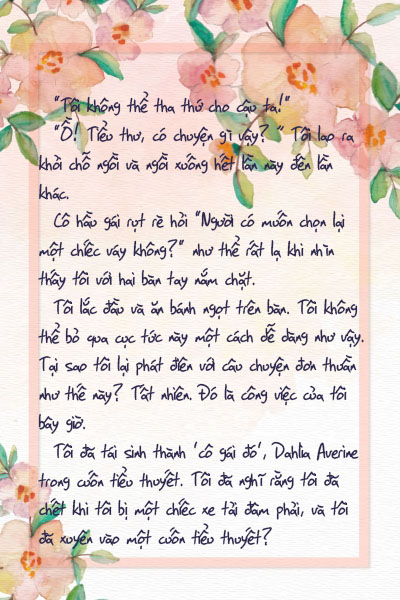 "Tôi không thể tha thứ cho cậu ta!"
"Ồ! Tiểu thư, có chuyện gì vậy? " Tôi lao ra
khỏi chỗ ngồi và ngồi xuống hết lần này đến lần
khác.
Cô hầu gái rụt rè hỏi "Người có muốn chọn lại
một chiếc váy không?" như thể rất lạ khi nhìn
thấy tôi với hai bàn tay nắm chặt.
Tôi lắc đầu và ăn bánh ngọt trên bàn. Tôi không
thể bỏ qua cục tức này một cách dễ dàng như vậy.
Tại sao tôi lại phát điên với câu chuyện đơn thuần
như thế này? Tất nhiên. Đó là công việc của tôi
bây giờ.
Tôi đã tái sinh thành 'cô gái đó', Dahlia Averine
trong cuốn tiểu thuyết. Tôi đã nghĩ rằng tôi đã
chết khi tôi bị một chiếc xe tải đâm phải, và tôi
đã xuyên vào một cuốn tiểu thuyết?